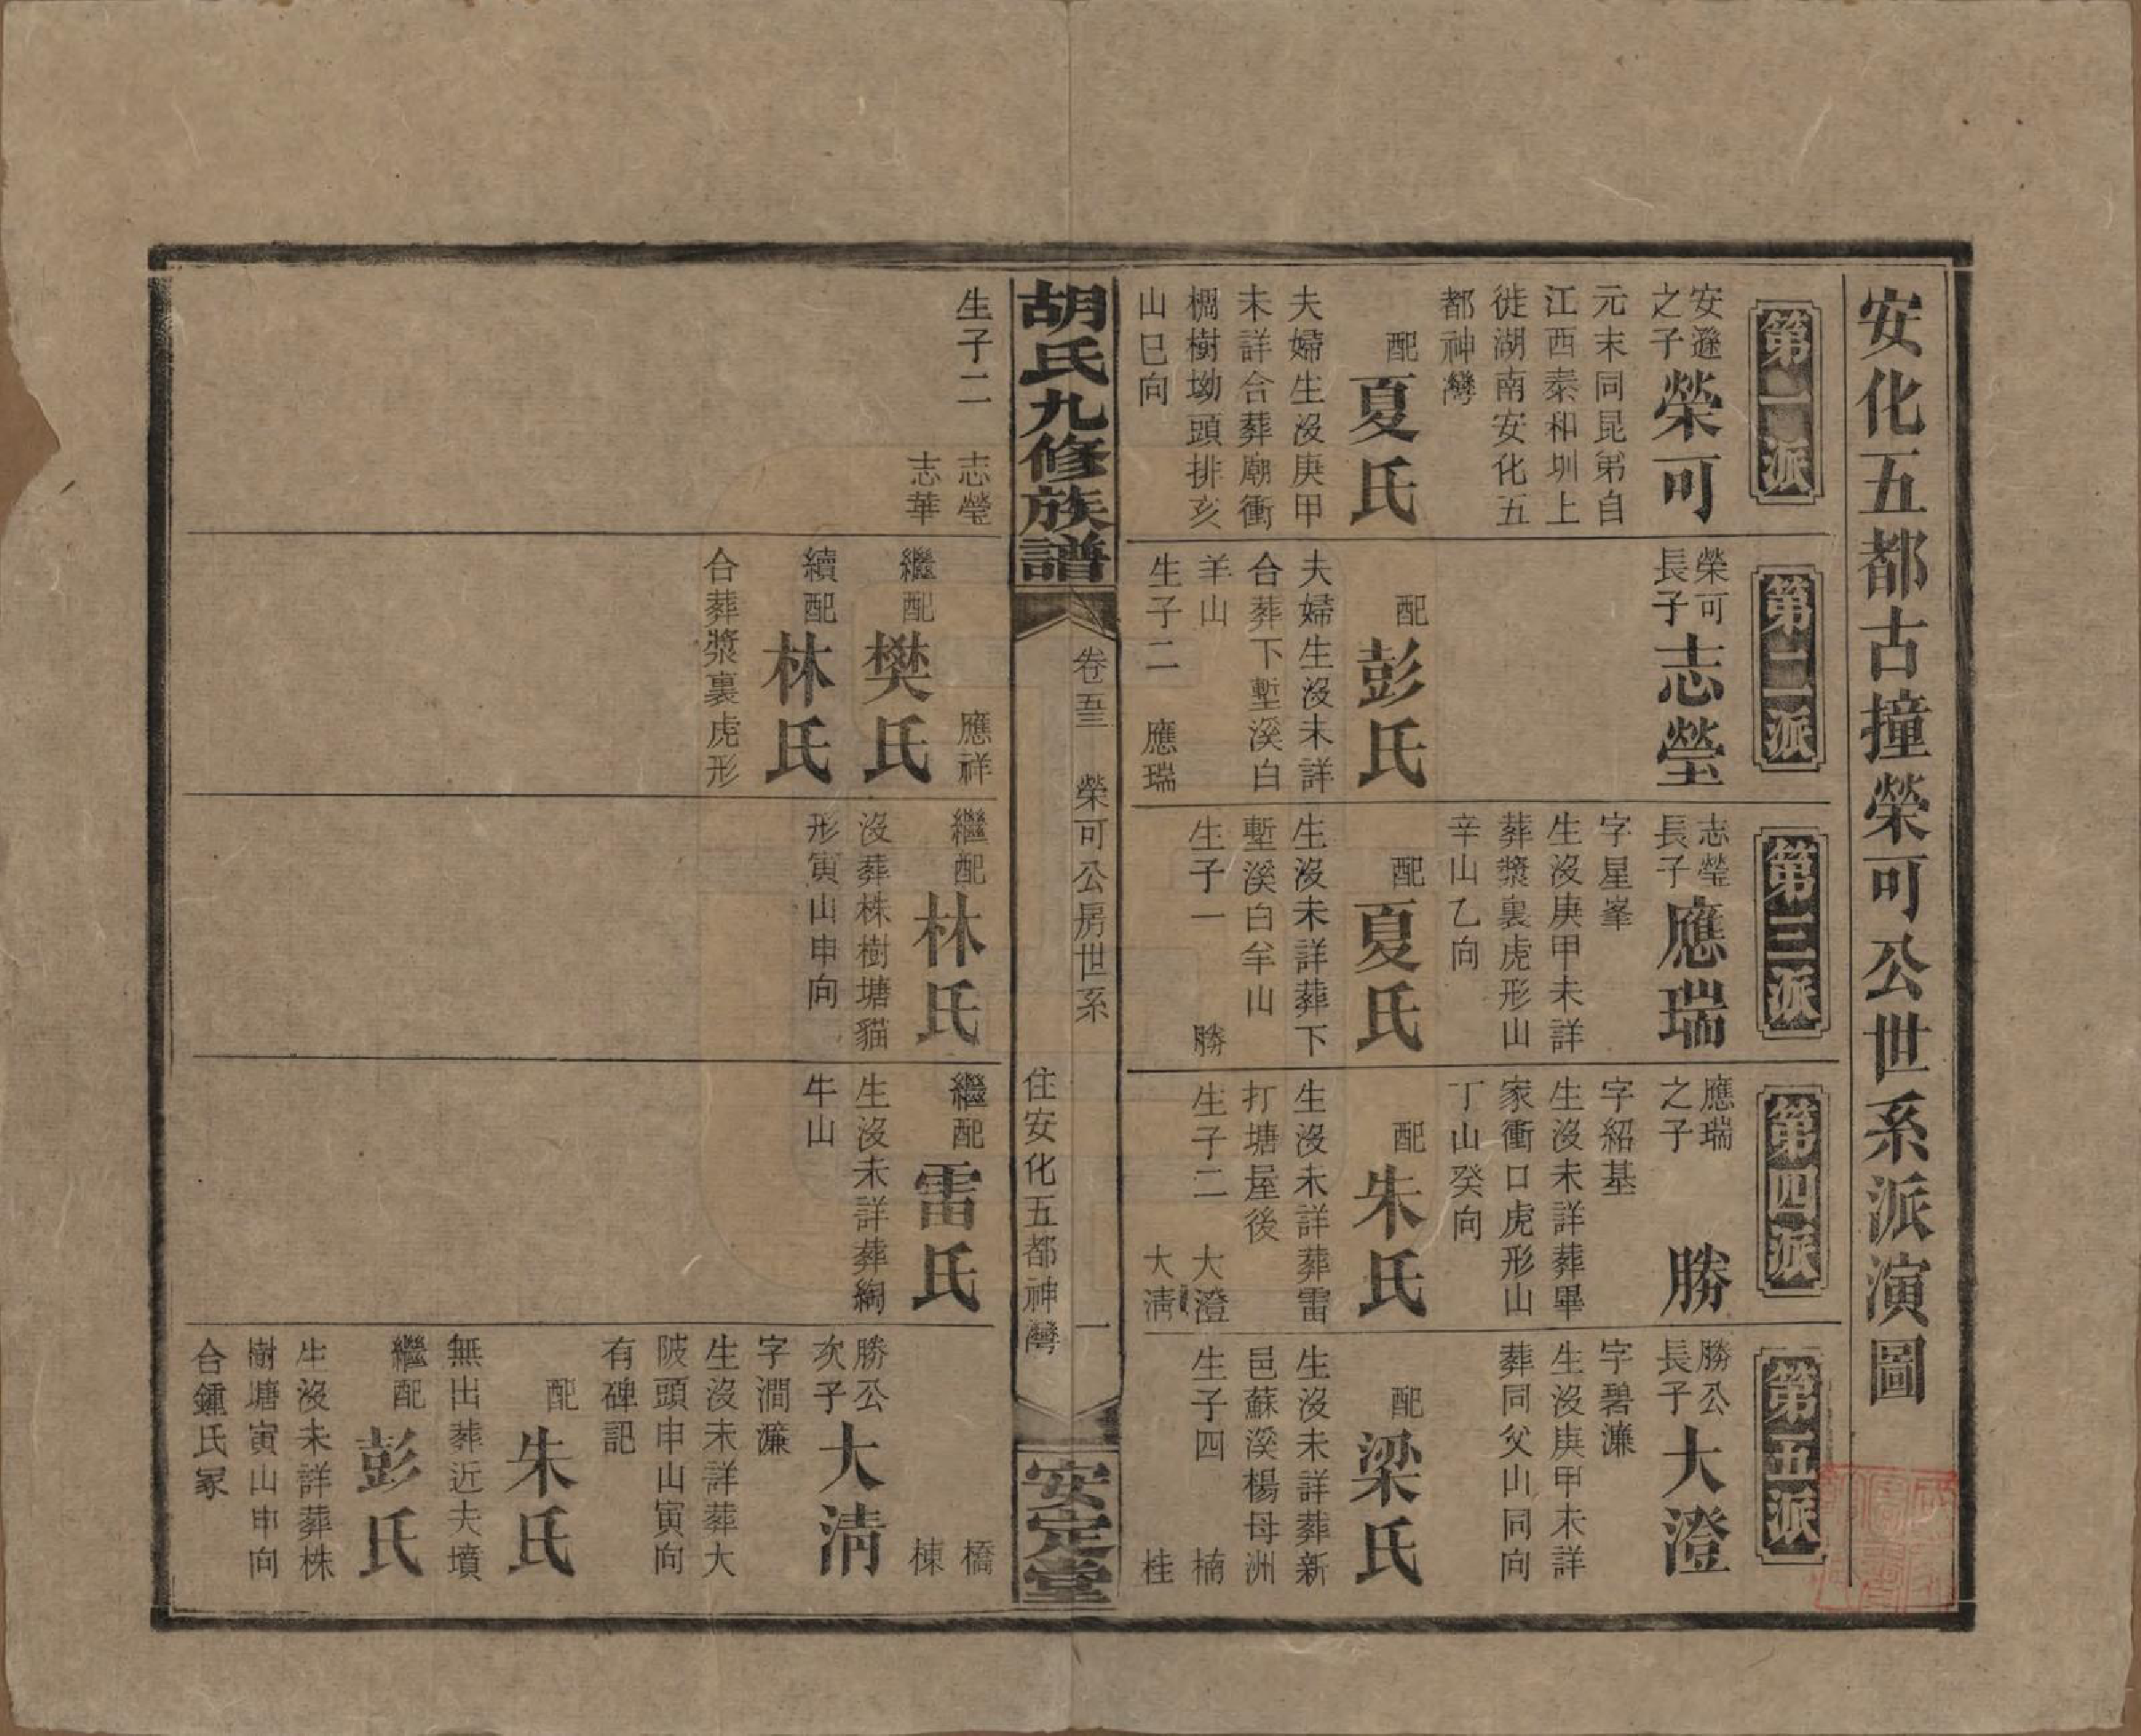 安化五都古撞榮可公世系派演圖
第一派
安遜之子
榮可
元末同昆弟自
江西泰和圳上
徙湖南安化五
都神灣
配
夏氏
夫婦生沒庚甲
未詳合葬廟衝
橺樹坳頭排亥
山巳向
生子二
志瑩
志華
第二派
榮可長子
志瑩
配
彭氏
夫婦生沒未詳
合葬下塹溪白
羊山
生子二
應瑞
應祥
繼配
樊氏
續配
林氏
合葬漿裏虎形
第三派
志瑩長子
應瑞
字星峯
生沒庚甲未詳
葬漿裏虎形山
辛山乙向
配
夏氏
生沒未詳葬下
塹溪白羊山
生子一
勝
繼配
林氏
沒葬株樹塘貓
形寅山申向
第四派
應瑞之子
勝
字紹基
生沒未詳葬畢
家衝口虎形山
丁山癸向
配
朱氏
生沒未詳葬雷
打塘屋後
生子二
大澄
大清
繼配
雷氏
生沒未詳葬綯
牛山
第五派
勝公長子
大澄
字碧濂
生沒庚甲未詳
葬同父山同向
配
梁氏
生沒未詳葬新
邑蘇溪楊母洲
生子四
楠
桂
橋
棟
勝公次子
大清
字澗濂
生沒未詳葬大
陂頭申山寅向
有碑記
配
朱氏
無出葬近夫墳
繼配
彭氏
生沒未詳葬株
樹塘寅山申向
合鍾氏冢
胡氏九修族譜
卷五三
榮可公房世系
住安化五都神灣
一
安定堂